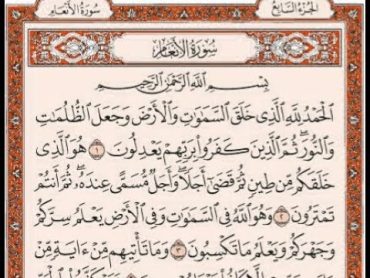 سُورَةُ الأَنعَامِ
الجُزءُ السَّابِعُ
سُورَةُ الأَنعَامِ
بِسْمِ اللَّهِ الرَّحْمَٰنِ الرَّحِيمِ
الْحَمْدُ لِلَّهِ الَّذِي خَلَقَ السَّمَٰوَٰتِ وَالْأَرْضَ وَجَعَلَ الظُّلُمَٰتِ
وَالنُّورَ ثُمَّ الَّذِينَ كَفَرُوا بِرَبِّهِمْ يَعْدِلُونَ ١ هُوَ الَّذِي
خَلَقَكُم مِّن طِينٍ ثُمَّ قَضَىٰ أَجَلًا وَأَجَلٌ مُّسَمًّى عِندَهُ ثُمَّ أَنتُمْ
تَمْتَرُونَ ٢ وَهُوَ اللَّهُ فِي السَّمَٰوَٰتِ وَفِي الْأَرْضِ يَعْلَمُ سِرَّكُمْ
وَجَهْرَكُمْ وَيَعْلَمُ مَا تَكْسِبُونَ ٣ وَمَا تَأْتِيهِم مِّنْ ءَايَةٍ مِّنْ